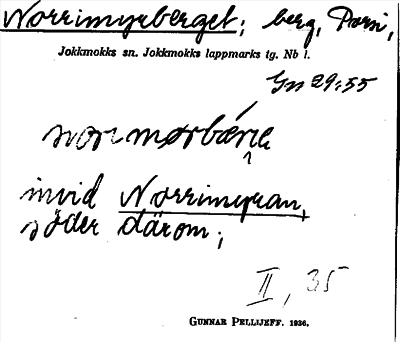 Norrimyrberget; berg, Porsi,
Jokkmokks sn. Jokkmokks lappmarks tg. Nb l.
Gn 29:55
invid Norrimyran,
söder därom;
II, 35
GUNNAR PELLIJEFF. 1936.